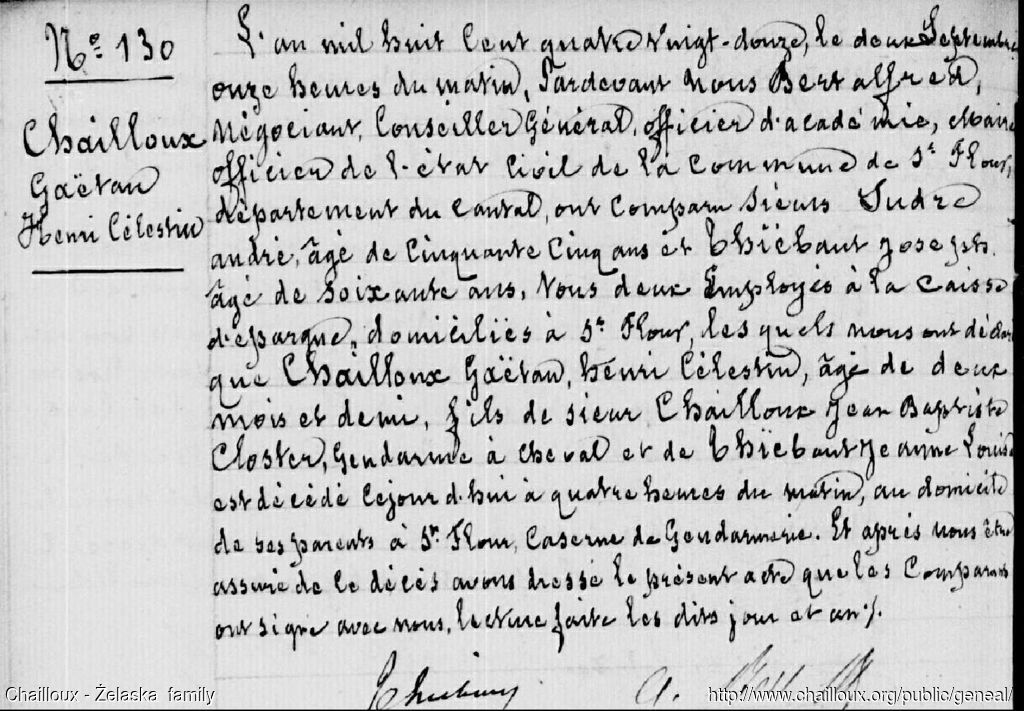 N° 130
Chailloux
Gaëtan
Henri Célestin
L'an mil huit cent quatre vingt-douze, le deux Septembre
onze heures du matin, Pardevant nous Bert alfred,
Négociant, Conseiller Général, officier d'académie, Maire
officier de l'état civil de la commune de St Flour,
département du Cantal, ont comparu sieurs Sudre
andré, âgé de cinquante cinq ans et Thiëbaut Joseph
âgé de soixante ans, Tous deux Employés à la Caisse
d'épargne, domiciliés à St Flour, les quels nous ont déclaré
que Chailloux Gaëtan, henri Célestin, âgé de deux
mois et demi, fils de sieur Chailloux Jean Baptiste
Closter, Gendarme à cheval et de Thiëbaut Jeanne Louise
est décédé cejourd'hui à quatre heures du matin, au domicile
de ses parents à St Flour, Caserne de Gendarmerie. Et après nous être
assuré de ce décès avons dressé le présent acte que les Comparants
ont signé avec nous, lecture faite les dits jour et an ./.
A.
Chailloux - Żelaska family
http://www.chailloux.org/public/geneal/